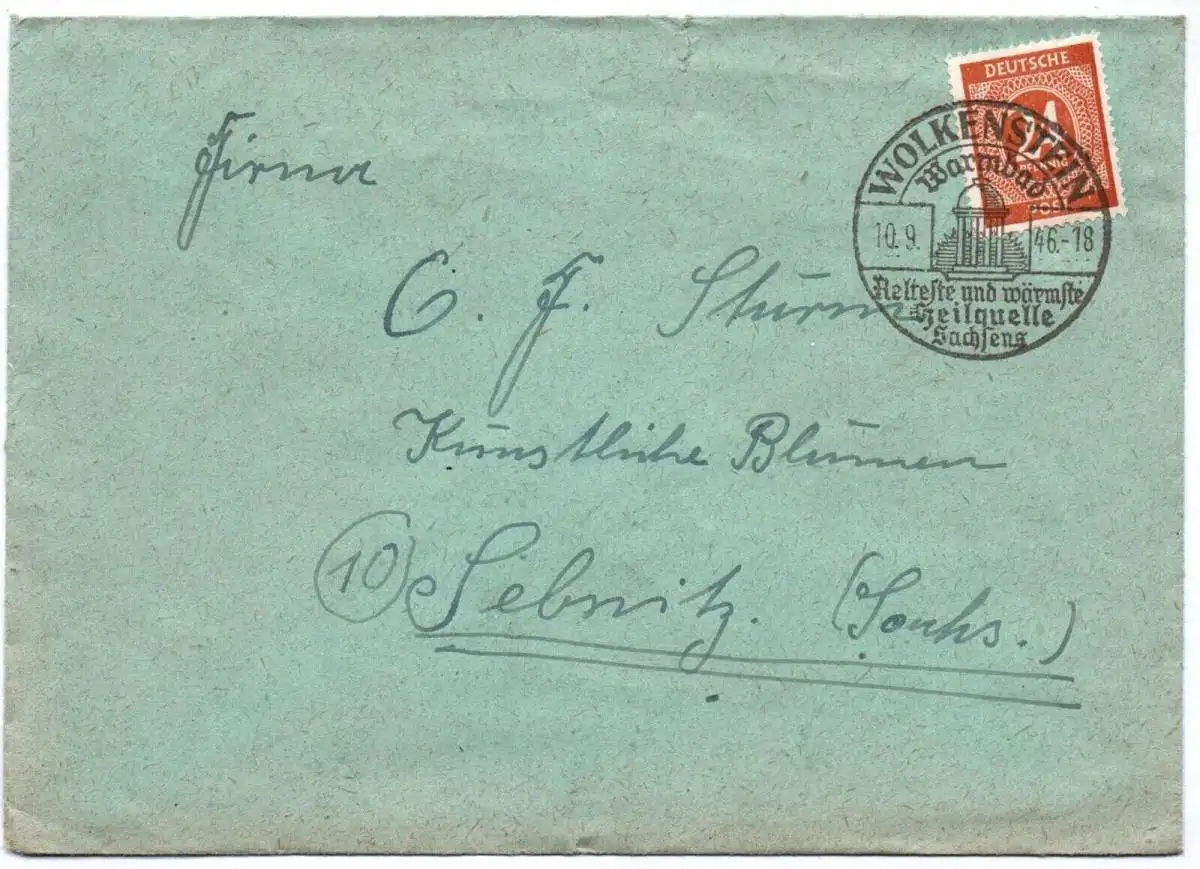 DEUTSCHE
WOLKENSTEIN
Warmbad
10.9. 46.-18
Aelteste und wärmste
Heilquelle
Sachsens
Firma
C. F. Sturm
Künstliche Blumen
10 Sebnitz. (Sachs.)